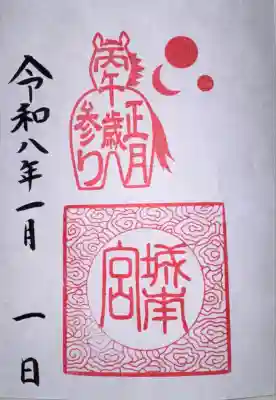 丙午歳
正月
参り
城南
宮
令和八年一月 一日